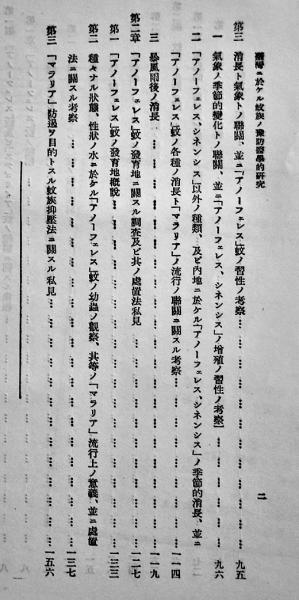 臺灣ニ於ケル蚊族ノ豫防醫學的研究
二
第三 消長ト氣象トノ聯關、並ニ「アノーフェレス」蚊ノ習性ノ考察………九五
一 氣象ノ季節的變化トノ聯關、並ニ「アノーフェレス、シネンシス」ノ增殖ノ習性ノ考察………九六
二 「アノーフェレス、シネンシス」以外ノ種類、及ビ内地ニ於ケル「アノーフェレス、シネンシス」ノ季節的消長、並ニ
「アノーフェレス」蚊ノ各種ノ消長ト「マラリア」ノ流行ノ聯關ニ關スル考察………一一四
三 暴風雨後ノ消長………一一九
第二章 「アノーフェレス」蚊ノ發育地ニ關スル調査及ビ其ノ處置法私見………一二二
第一 「アノーフェレス」蚊ノ發育地概說………一二三
第二 種々ナル狀態、性狀ノ水ニ於ケル「アノーフェレス」蚊ノ幼蟲ノ觀察、其等ノ「マラリア」流行上ノ意義、並ニ處置
法ニ關スル考察………一三七
第三 「マラリア」防遏ヲ目的トスル蚊族抑壓法ニ關スル私見………一五六